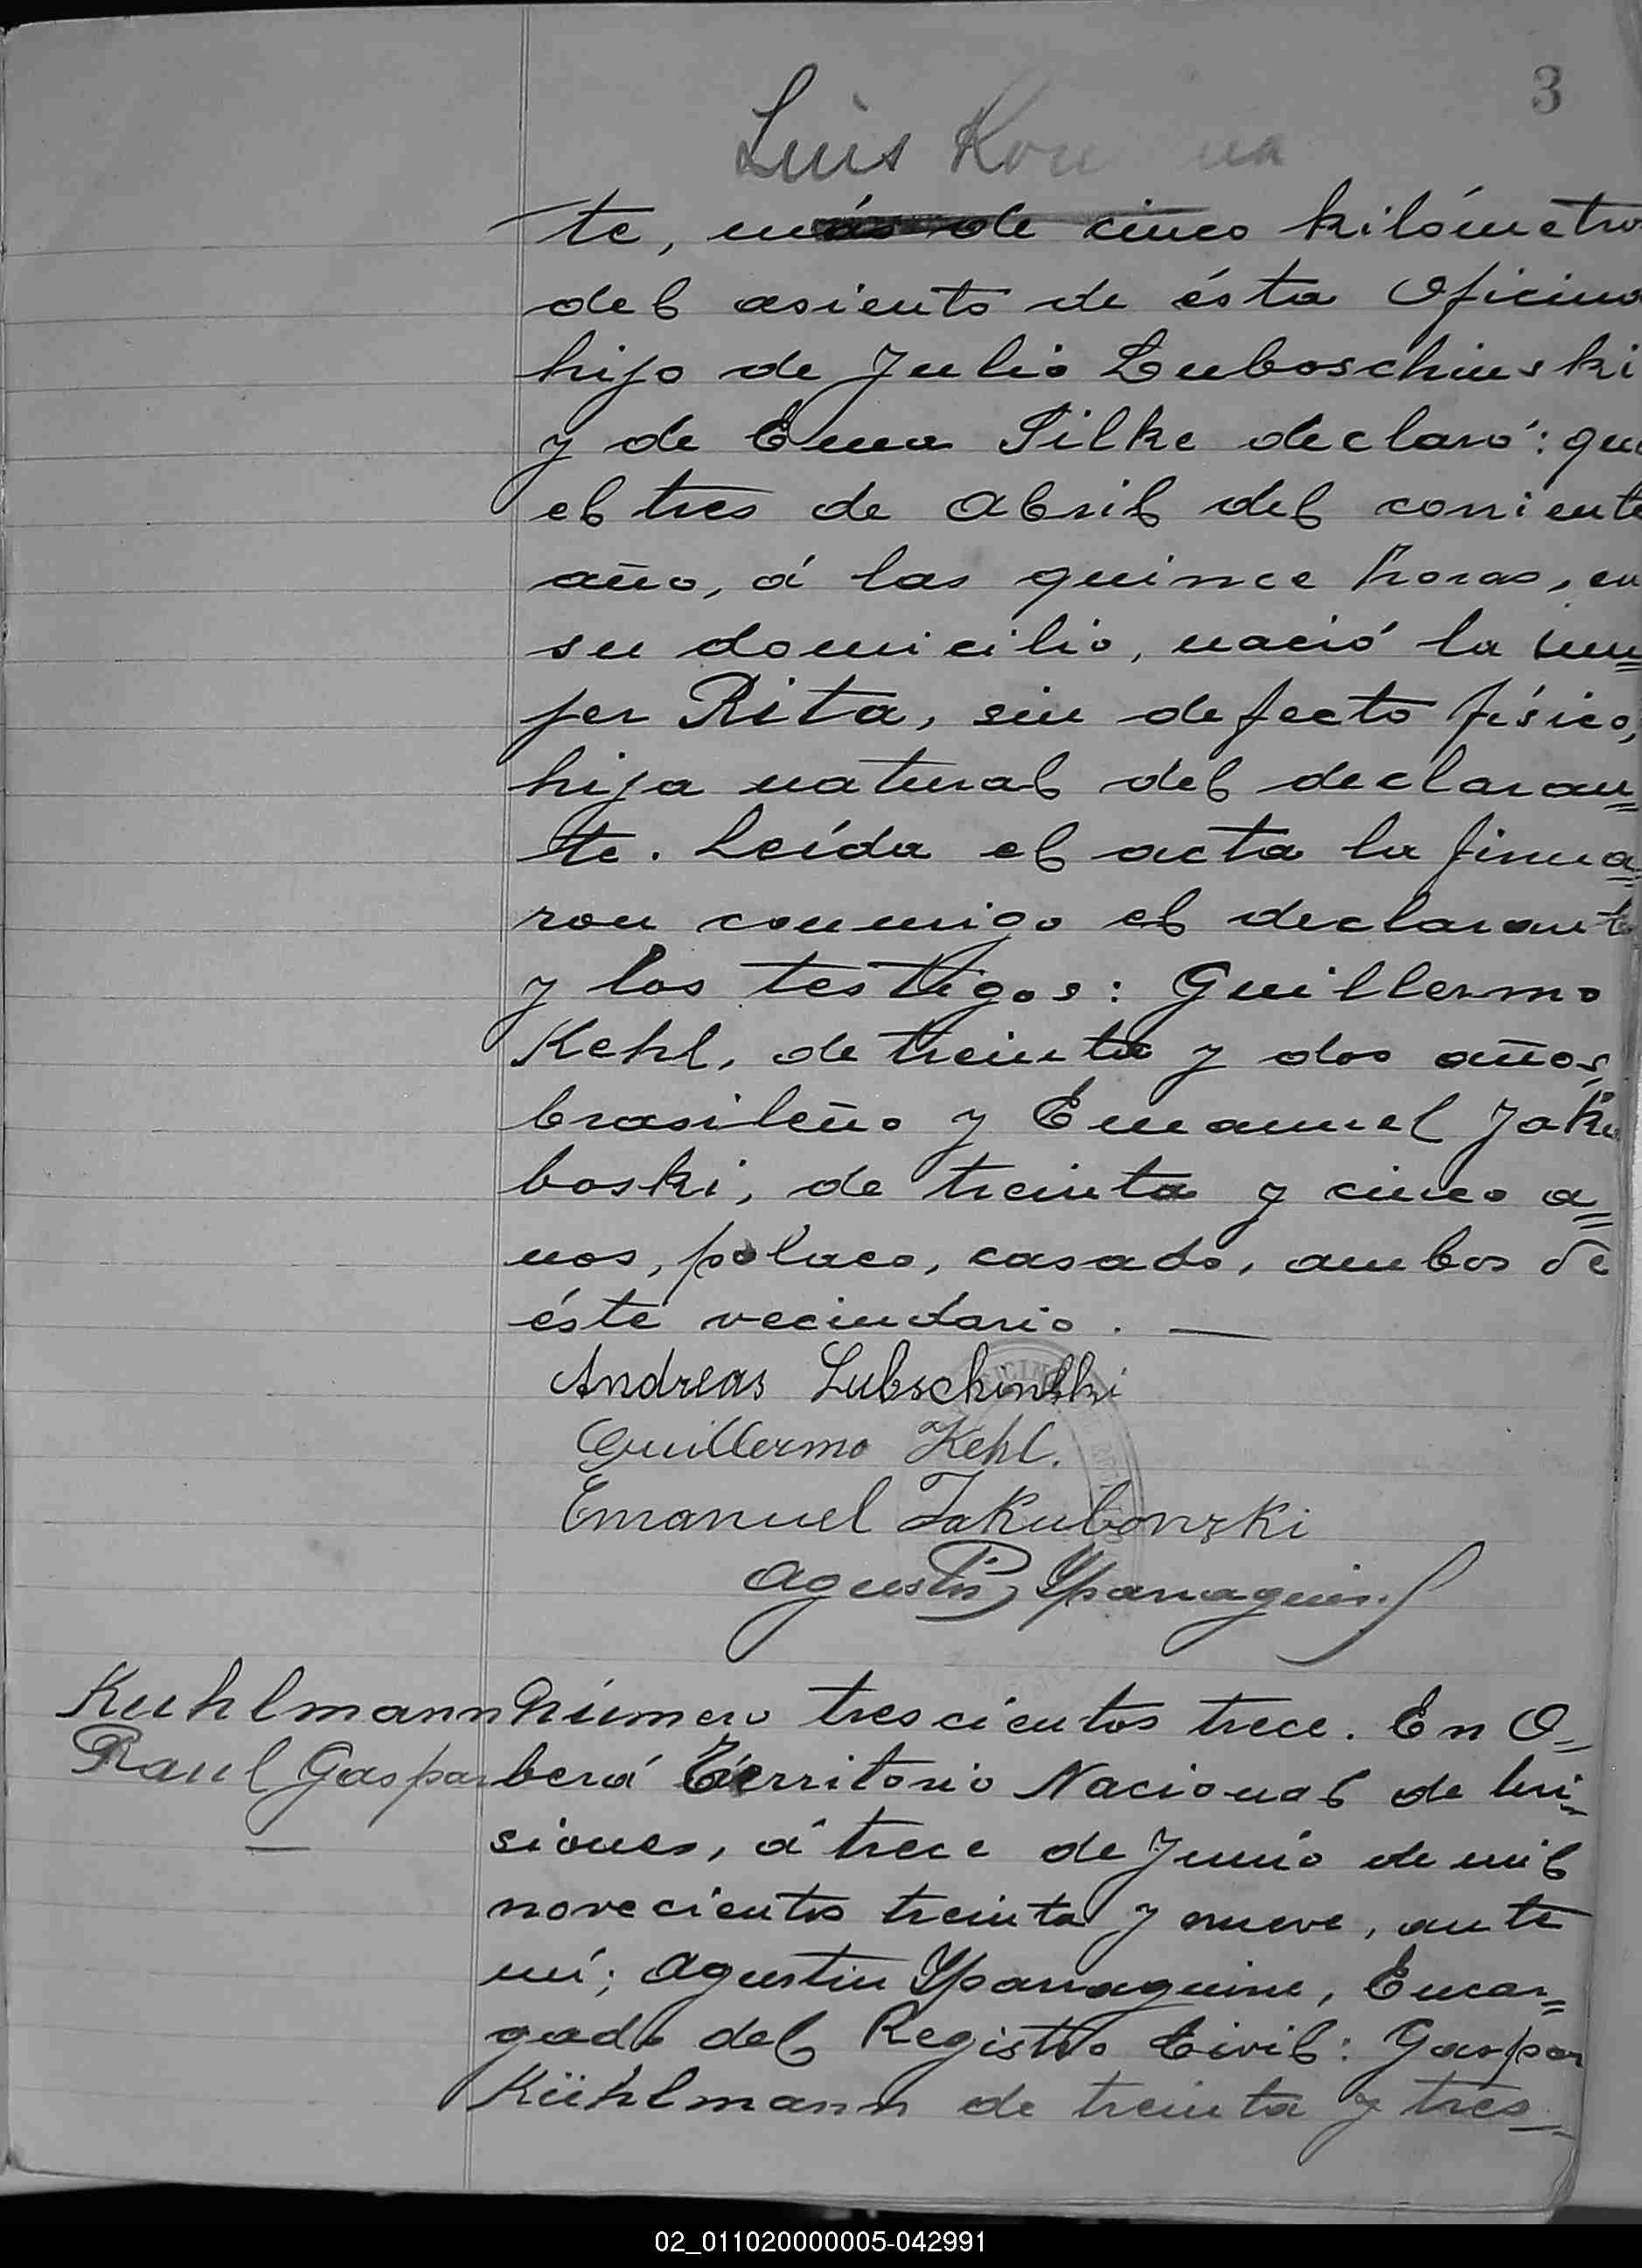 3
Luis
te, más de cinco kilómetro
del asiento de ésta Oficina
hijo de Julio Luboschinski
y de Ema Pilke declaró: que
el tres de Abril del corriente
año, á las quince horas, en
su domicilio, nació la mu=
jer Rita, sin defecto físico,
hija natural del declaran=
te. Leída el acta la firma=
ron conmigo el declarante
y los testigos: Guillermo
Kehl, de treinta y dos años,
brasileño y Emanuel Jaku
boski, de treinta y cinco a=
nos, polaco, casado, ambos de
éste vecindario. —
Andreas Lubschinski
Guillermo Kehl.
Emanuel Jakubowski
Agustin Yparraguirre
Kuhlmann
Raul Gaspar
—
Número trescientos trece. En O=
berá Territorio Nacional de Mi=
siones, á trece de Junio de mil
novecientos treinta y nueve, ante
mí; Agustin Yparraguirre, Encar=
gado del Registro Civil: Gaspar
Kühlmann de treinta y tres
02_011020000005-042991